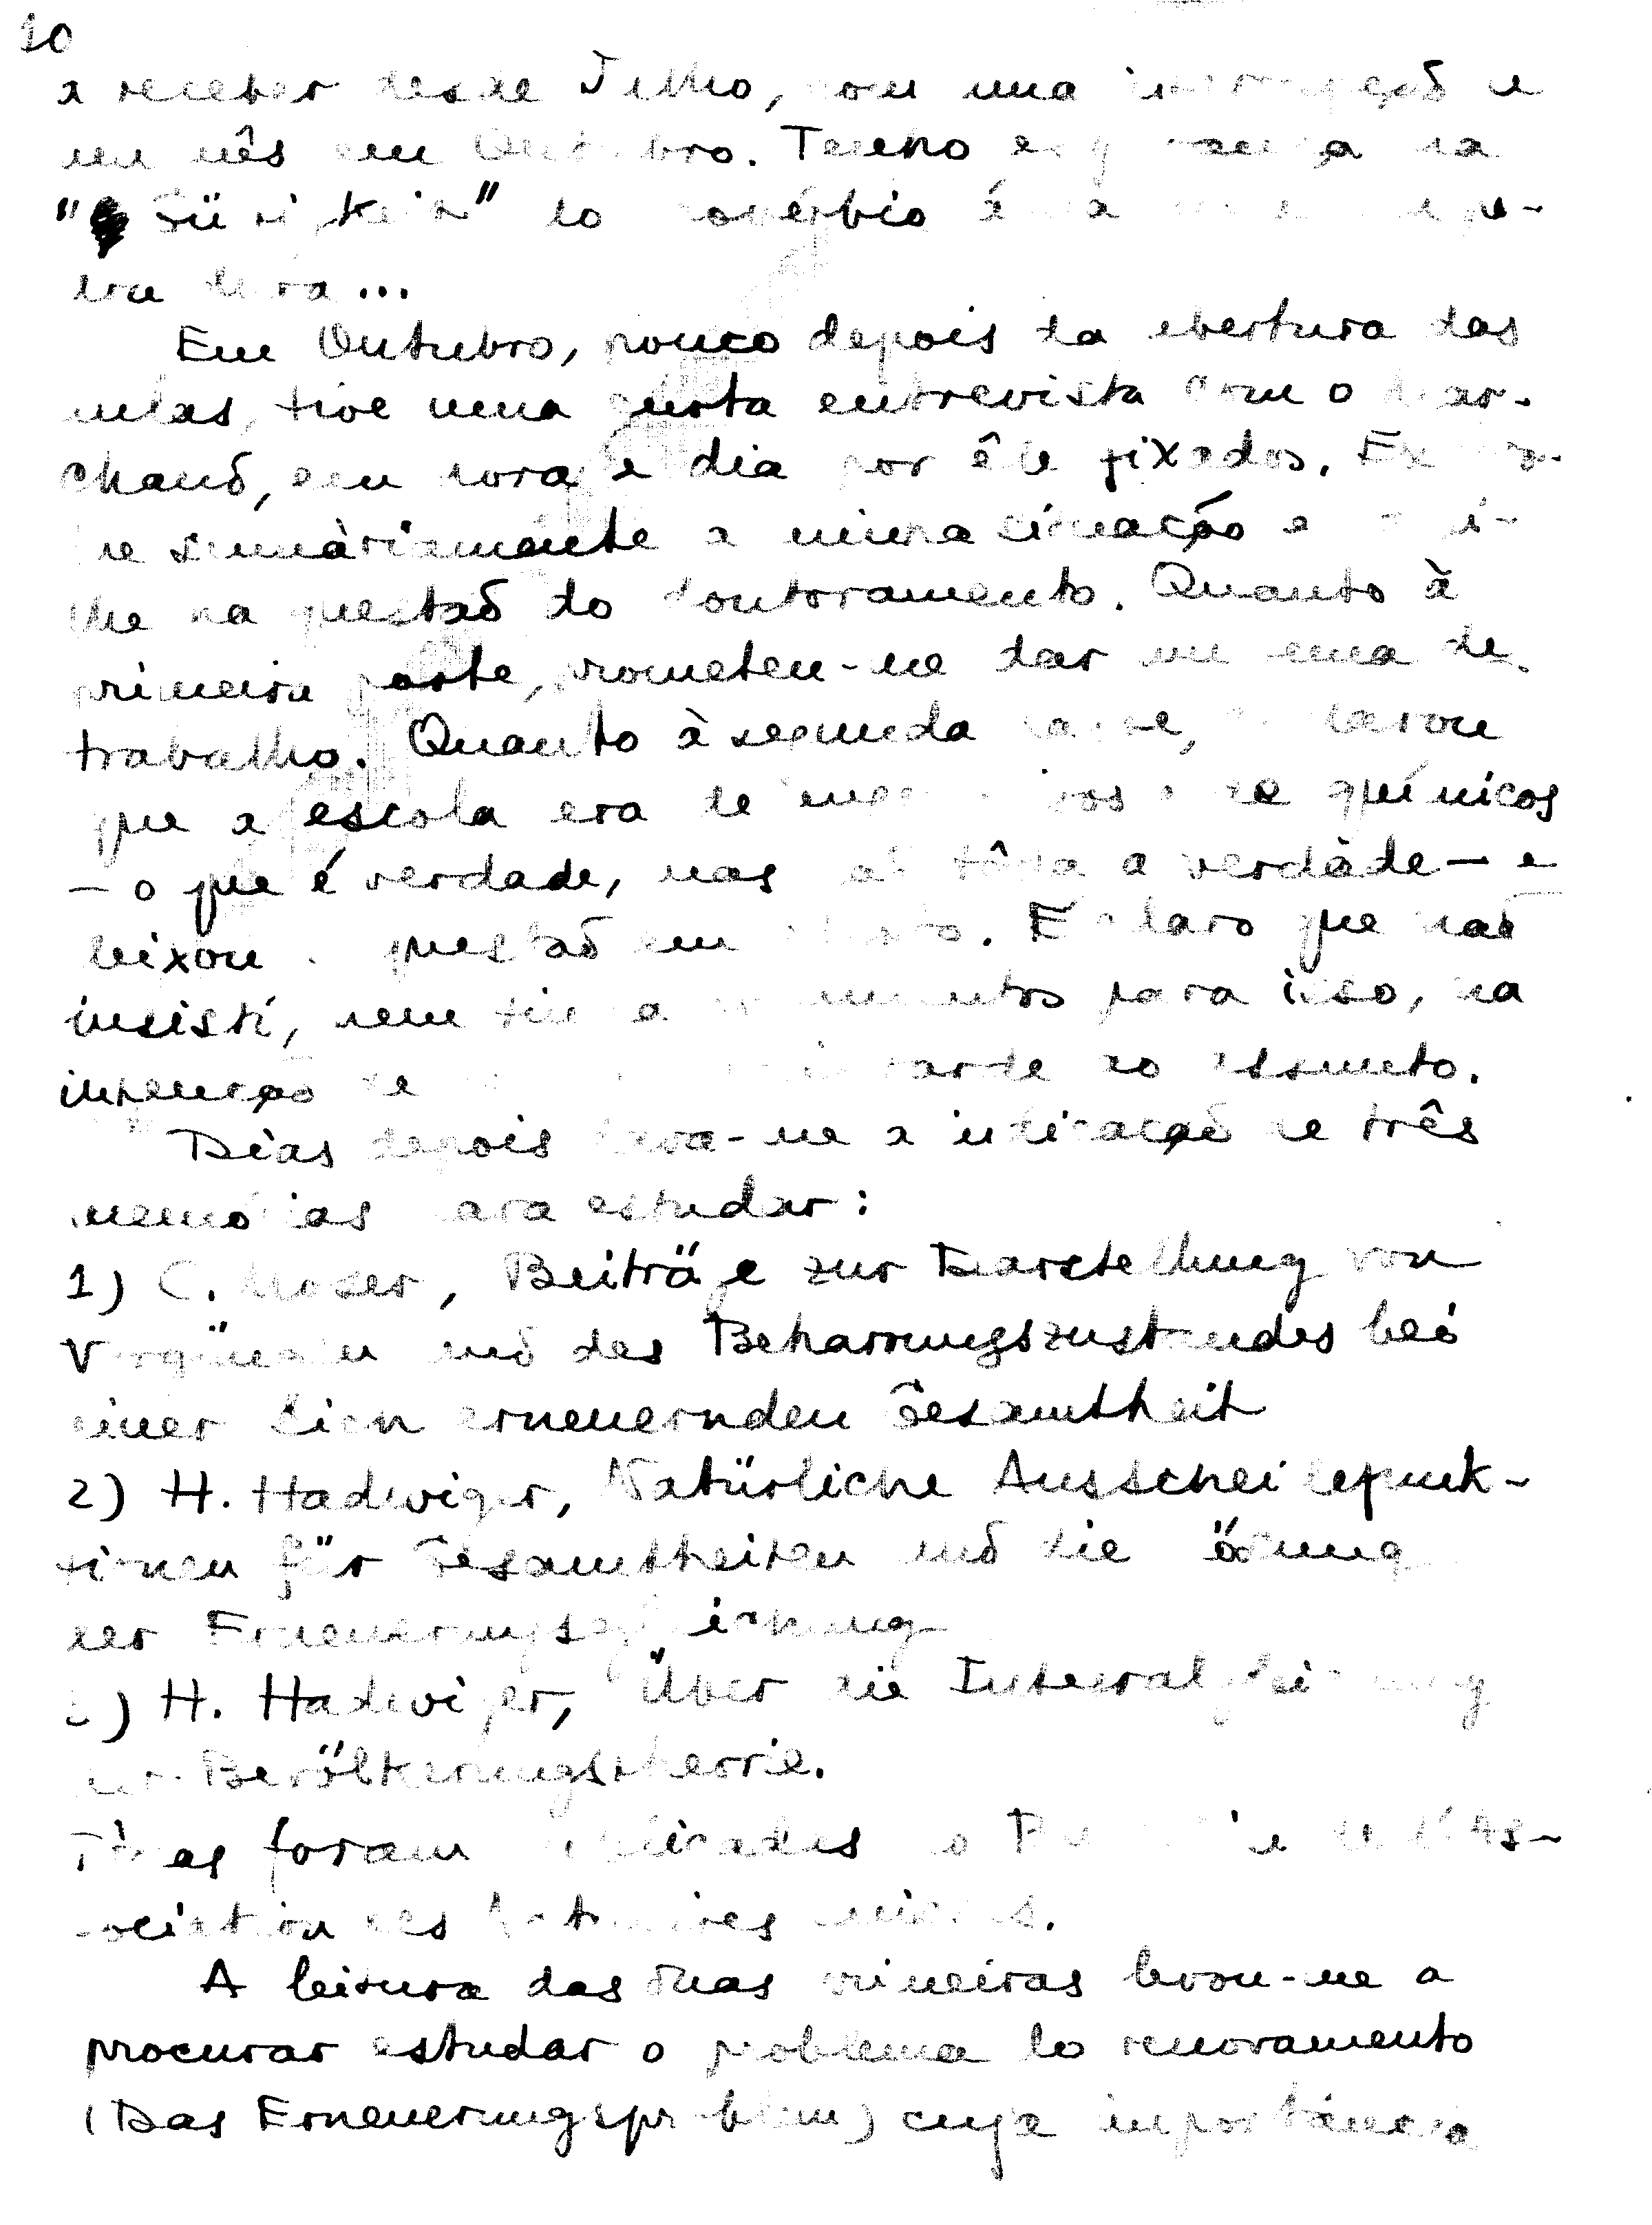 10
a receber desde Julho, com uma interrupção de
um mês em Outubro. Tenho esperança na
do provérbio
Em Outubro, pouco depois da abertura das
aulas, tive uma curta entrevista com o Mar-
chand, em hora e dia por êle fixados.
sumàriamente a minha situação e
lhe na questão do doutoramento. Quanto à
primeira parte, prometeu-me dar um tema de
trabalho. Quanto à segunda parte, declarou
que a escola era de engenheiros e de químicos
— o que é verdade, mas não tôda a verdade — e
deixou a questão em. É claro que não
insisti, nem tive argumentos para isso, na
intenção de tarde ao assunto.
Dias depois dava-me a indicação de três
memórias para estudar:
1) C. Moser, Beiträge zur Darstellung von
Vorgängen und des Beharrungszustandes bei
einer sich erneuernden Gesamtheit
2) H. Hadwiger, Natürliche Ausscheidefunk-
tionen für Gesamtheiten und die Lösung
der Erneuerungsgleichung
3) H. Hadwiger, Über die Integralgleichung
der Bevölkerungstheorie.
Tôdas foram publicadas no de l'As-
sociation des Actuaires suisses.
A leitura das duas primeiras levou-me a
procurar estudar o problema do renovamento
(Das Erneuerungsproblem) cuja importância